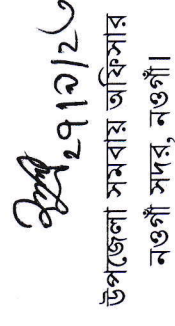 ২৭/১/২৫
উপজেলা সমবায় অফিসার
নওগাঁ সদর, নওগাঁ।